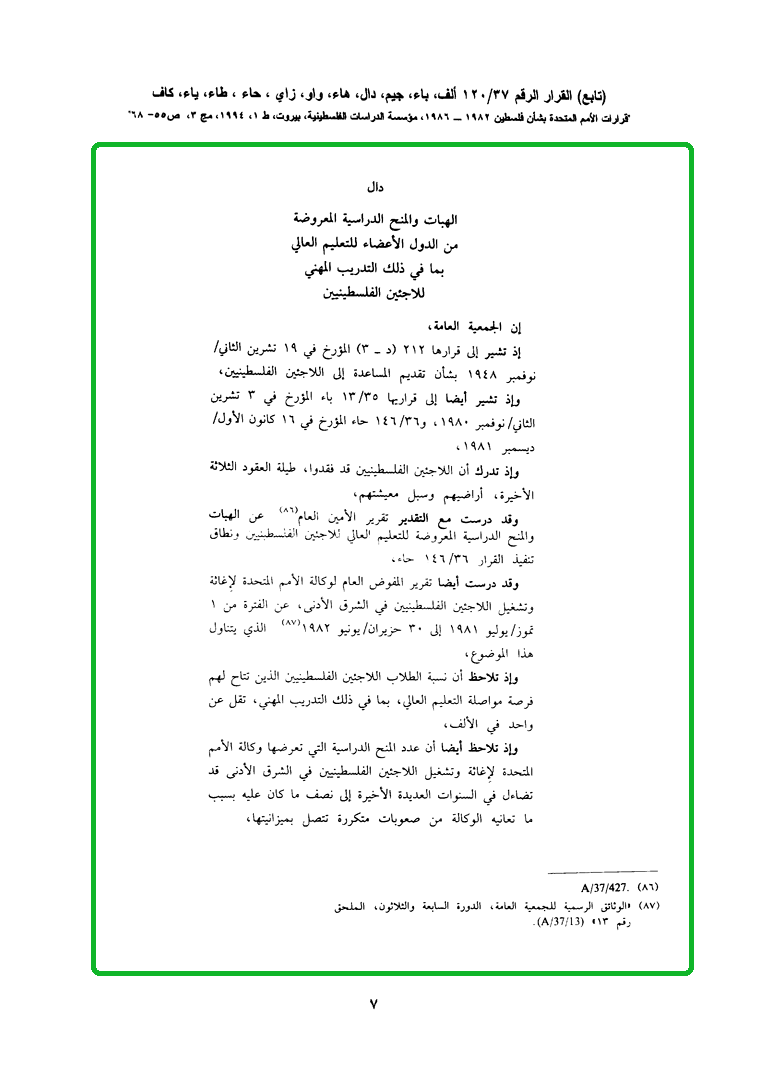 (تابع) القرار الرقم ١٢٠/٣٧ ألف، باء، جيم، دال، هاء، واو، زاي ، حاء ، طاء، ياء، كاف
"قرارات الأمم المتحدة بشأن فلسطين ١٩٨٢ ــ ١٩٨٦، مؤسسة الدراسات الفلسطينية، بيروت، ط ١، ١٩٩٤، مج ٣، ص٥٥- ٦٨"
دال
الهبات والمنح الدراسية المعروضة
من الدول الأعضاء للتعليم العالي
بما في ذلك التدريب المهني
للاجئين الفلسطينيين
إن الجمعية العامة،
إذ تشير إلى قرارها ٢١٢ (د ــ ٣) المؤرخ في ١٩ تشرين الثاني/
نوفمبر ١٩٤٨ بشأن تقديم المساعدة إلى اللاجئين الفلسطينيين،
وإذ تشير أيضا إلى قراريها ١٣/٣٥ باء المؤرخ في ٣ تشرين
الثاني/ نوفمبر ١٩٨٠، و١٤٦/٣٦ حاء المؤرخ في ١٦ كانون الأول/
ديسمبر ١٩٨١،
وإذ تدرك أن اللاجئين الفلسطينيين قد فقدوا، طيلة العقود الثلاثة
الأخيرة، أراضيهم وسبل معيشتهم،
وقد درست مع التقدير تقرير الأمين العام(٨٦) عن الهبات
والمنح الدراسية المعروضة للتعليم العالي للاجئين الفلسطينيين ونطاق
تنفيذ القرار ١٤٦/٣٦ حاء،
وقد درست أيضا تقرير المفوض العام لوكالة الأمم المتحدة لإغاثة
وتشغيل اللاجئين الفلسطينيين في الشرق الأدنى، عن الفترة من ١
تموز/ يوليو ١٩٨١ إلى ٣٠ حزيران/ يونيو ١٩٨٢(٨٧) الذي يتناول
هذا الموضوع،
وإذ تلاحظ أن نسبة الطلاب اللاجئين الفلسطينيين الذين تتاح لهم
فرصة مواصلة التعليم العالي، بما في ذلك التدريب المهني، تقل عن
واحد في الألف،
وإذ تلاحظ أيضا أن عدد المنح الدراسية التي تعرضها وكالة الأمم
المتحدة لإغاثة وتشغيل اللاجئين الفلسطينيين في الشرق الأدنى قد
تضاءل في السنوات العديدة الأخيرة إلى نصف ما كان عليه بسبب
ما تعانيه الوكالة من صعوبات متكررة تتصل بميزانيتها،
(٨٦) A/37/427.
(٨٧) «الوثائق الرسمية للجمعية العامة، الدورة السابعة والثلاثون، الملحق
رقم ١٣» (A/37/13).
٧